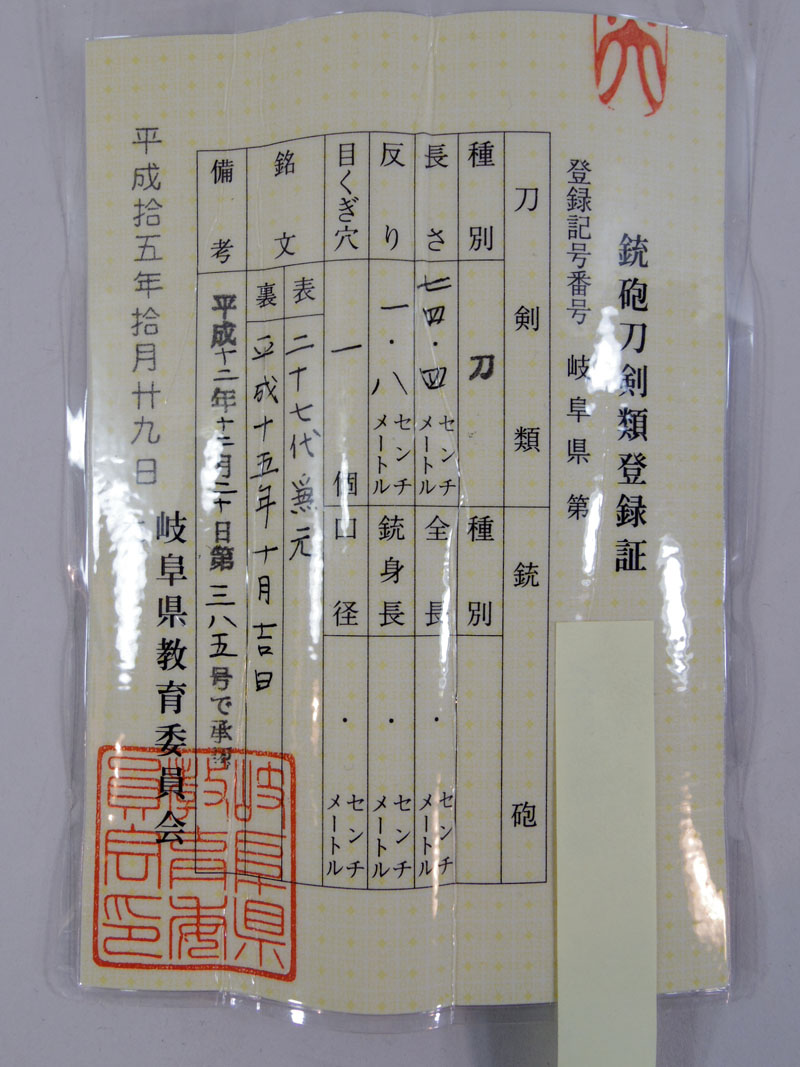 銃砲刀剣類登録証
登録記号番号 岐阜県 第
刀剣類 銃砲
種別 刀 種別
長さ 七四・四 センチメートル 全長 ・ センチメートル
反り 一・八 センチメートル 銃身長 ・ センチメートル
目くぎ穴 一 個 口径 ・ センチメートル
銘文 表 二十七代兼元
裏 平成十五年十月吉日
備考 平成十二年十二月二十日第三八五号で承認
平成拾五年拾月廿九日
岐阜県教育委員会
岐阜県教育委員会印